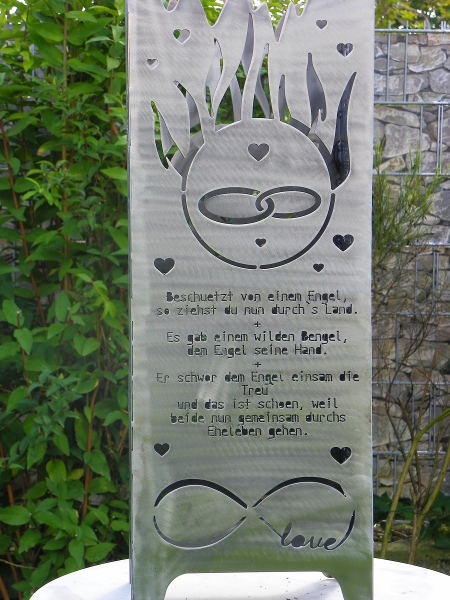 Beschuetzt von einem Engel,
so ziehst du nun durch's Land.
+
Es gab einem wilden Bengel,
dem Engel seine Hand.
+
Er schwor dem Engel einsam die
Treu
und das ist schoen, weil
beide nun gemeinsam durchs
Eheleben gehen.
love